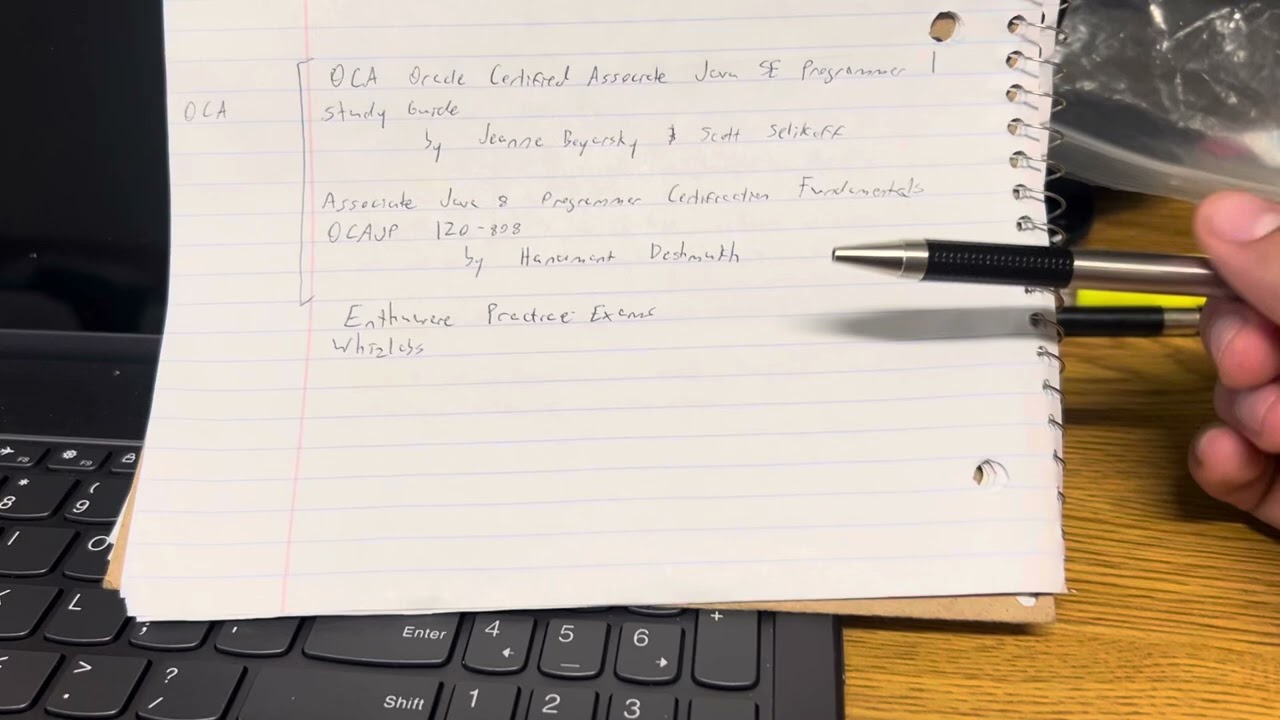 OCA Oracle Certified Associate Java SE Programmer 1
OCA
Study Guide
by Jeanne Boyarsky & Scott Selikoff
Associate Java 8 Programmer Certification Fundamentals
OCAJP 1Z0-808
by Hanumant Deshmukh
Enthuware Practice Exams
Whizlabs
F8
F9
*
8
(
9
/
O
L
Enter
4
5
6
+
;
'
>
.
?
/
Shift
1
2
3